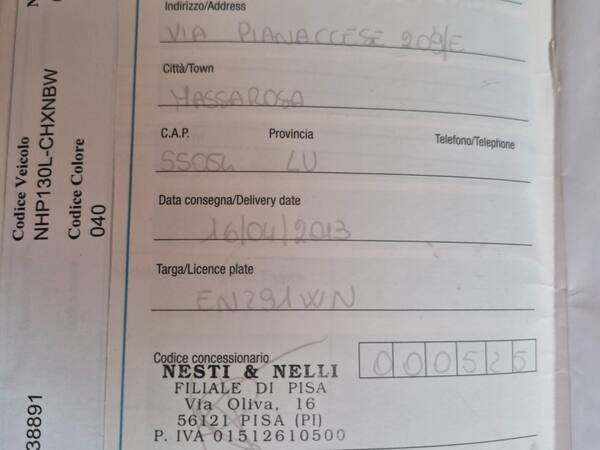 Indirizzo/Address
VIA PIANACCESE 209/E
Città/Town
MASSAROSA
C.A.P. Provincia Telefono/Telephone
55054 LU
Data consegna/Delivery date
16/04/2013
Targa/Licence plate
EN291WN
Codice concessionario
000525
NESTI & NELLI
FILIALE DI PISA
Via Oliva, 16
56121 PISA (PI)
P. IVA 01512610500
Codice Veicolo
NHP130L-CHXNBW
Codice Colore
040
38891